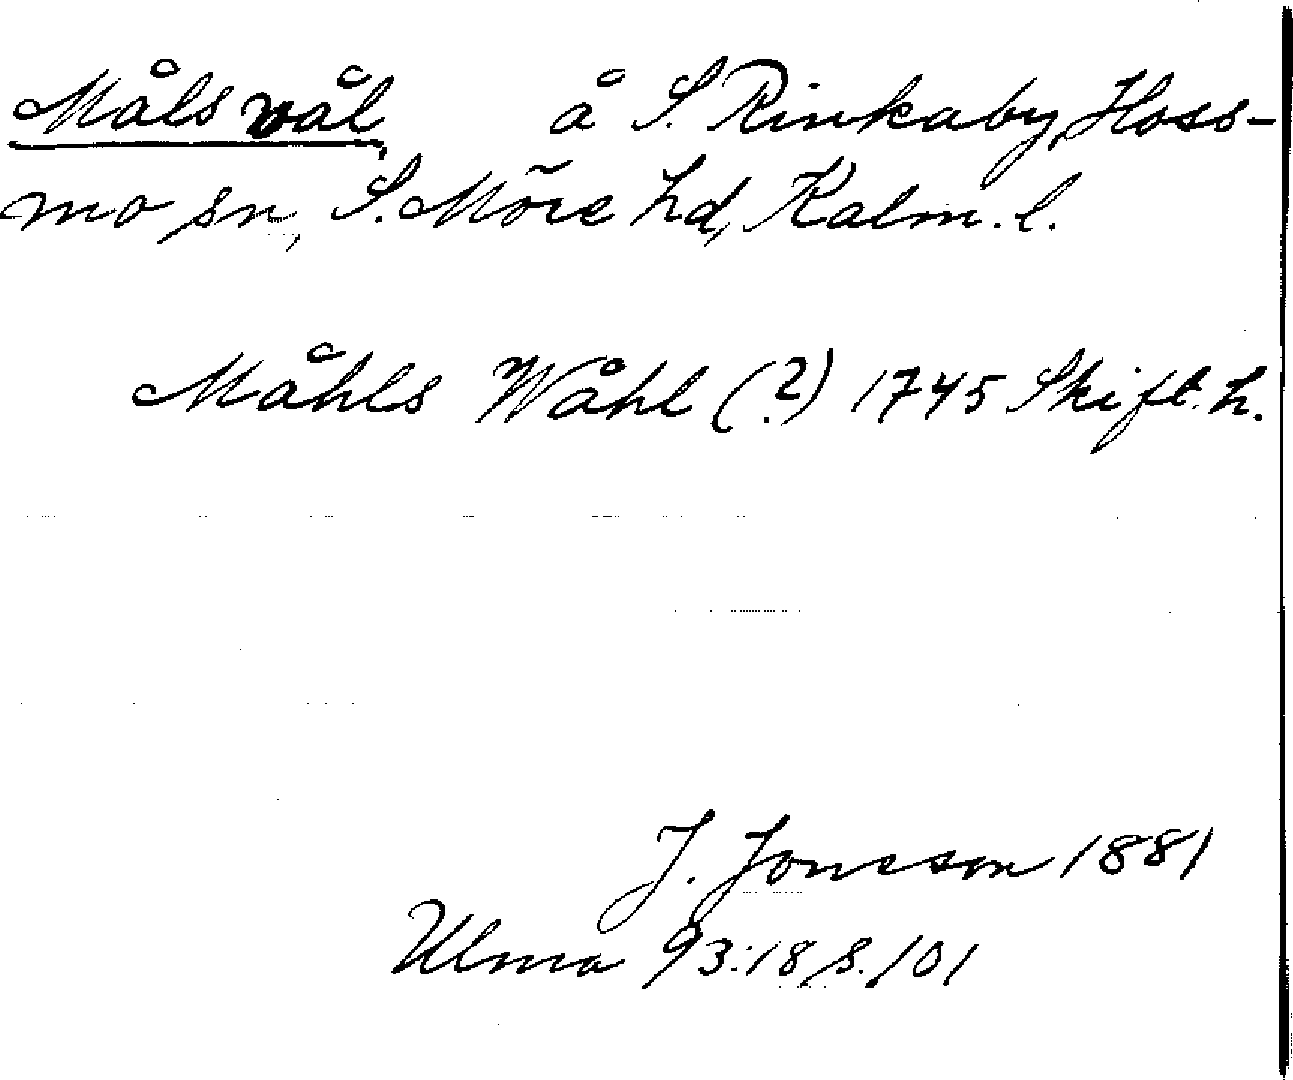 Målsvål å S. Rinkaby, Hoss-
mo sn, S. Möre hd, Kalm. l.
Måhls Wåhl (?) 1745 Skift. h.
J. Jonsson 1881
Ulma 93:18, s. 101